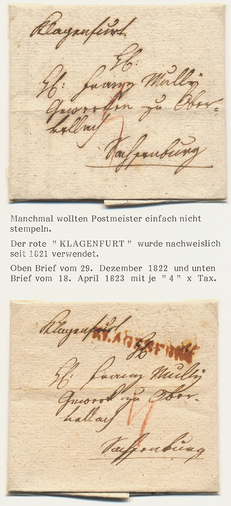 Klagenfurt
Franz Mully
Gewerken zu Ober=
vellach
Sachsenburg
Manchmal wollten Postmeister einfach nicht
stempeln.
Der rote "KLAGENFURT" wurde nachweislich
seit 1821 verwendet.
Oben Brief vom 29. Dezember 1822 und unten
Brief vom 18. April 1823 mit je "4" x Tax.
Klagenfurt
KLAGENFURT
Franz Mully
Gewerk zu Ober=
vellach
Sachsenburg